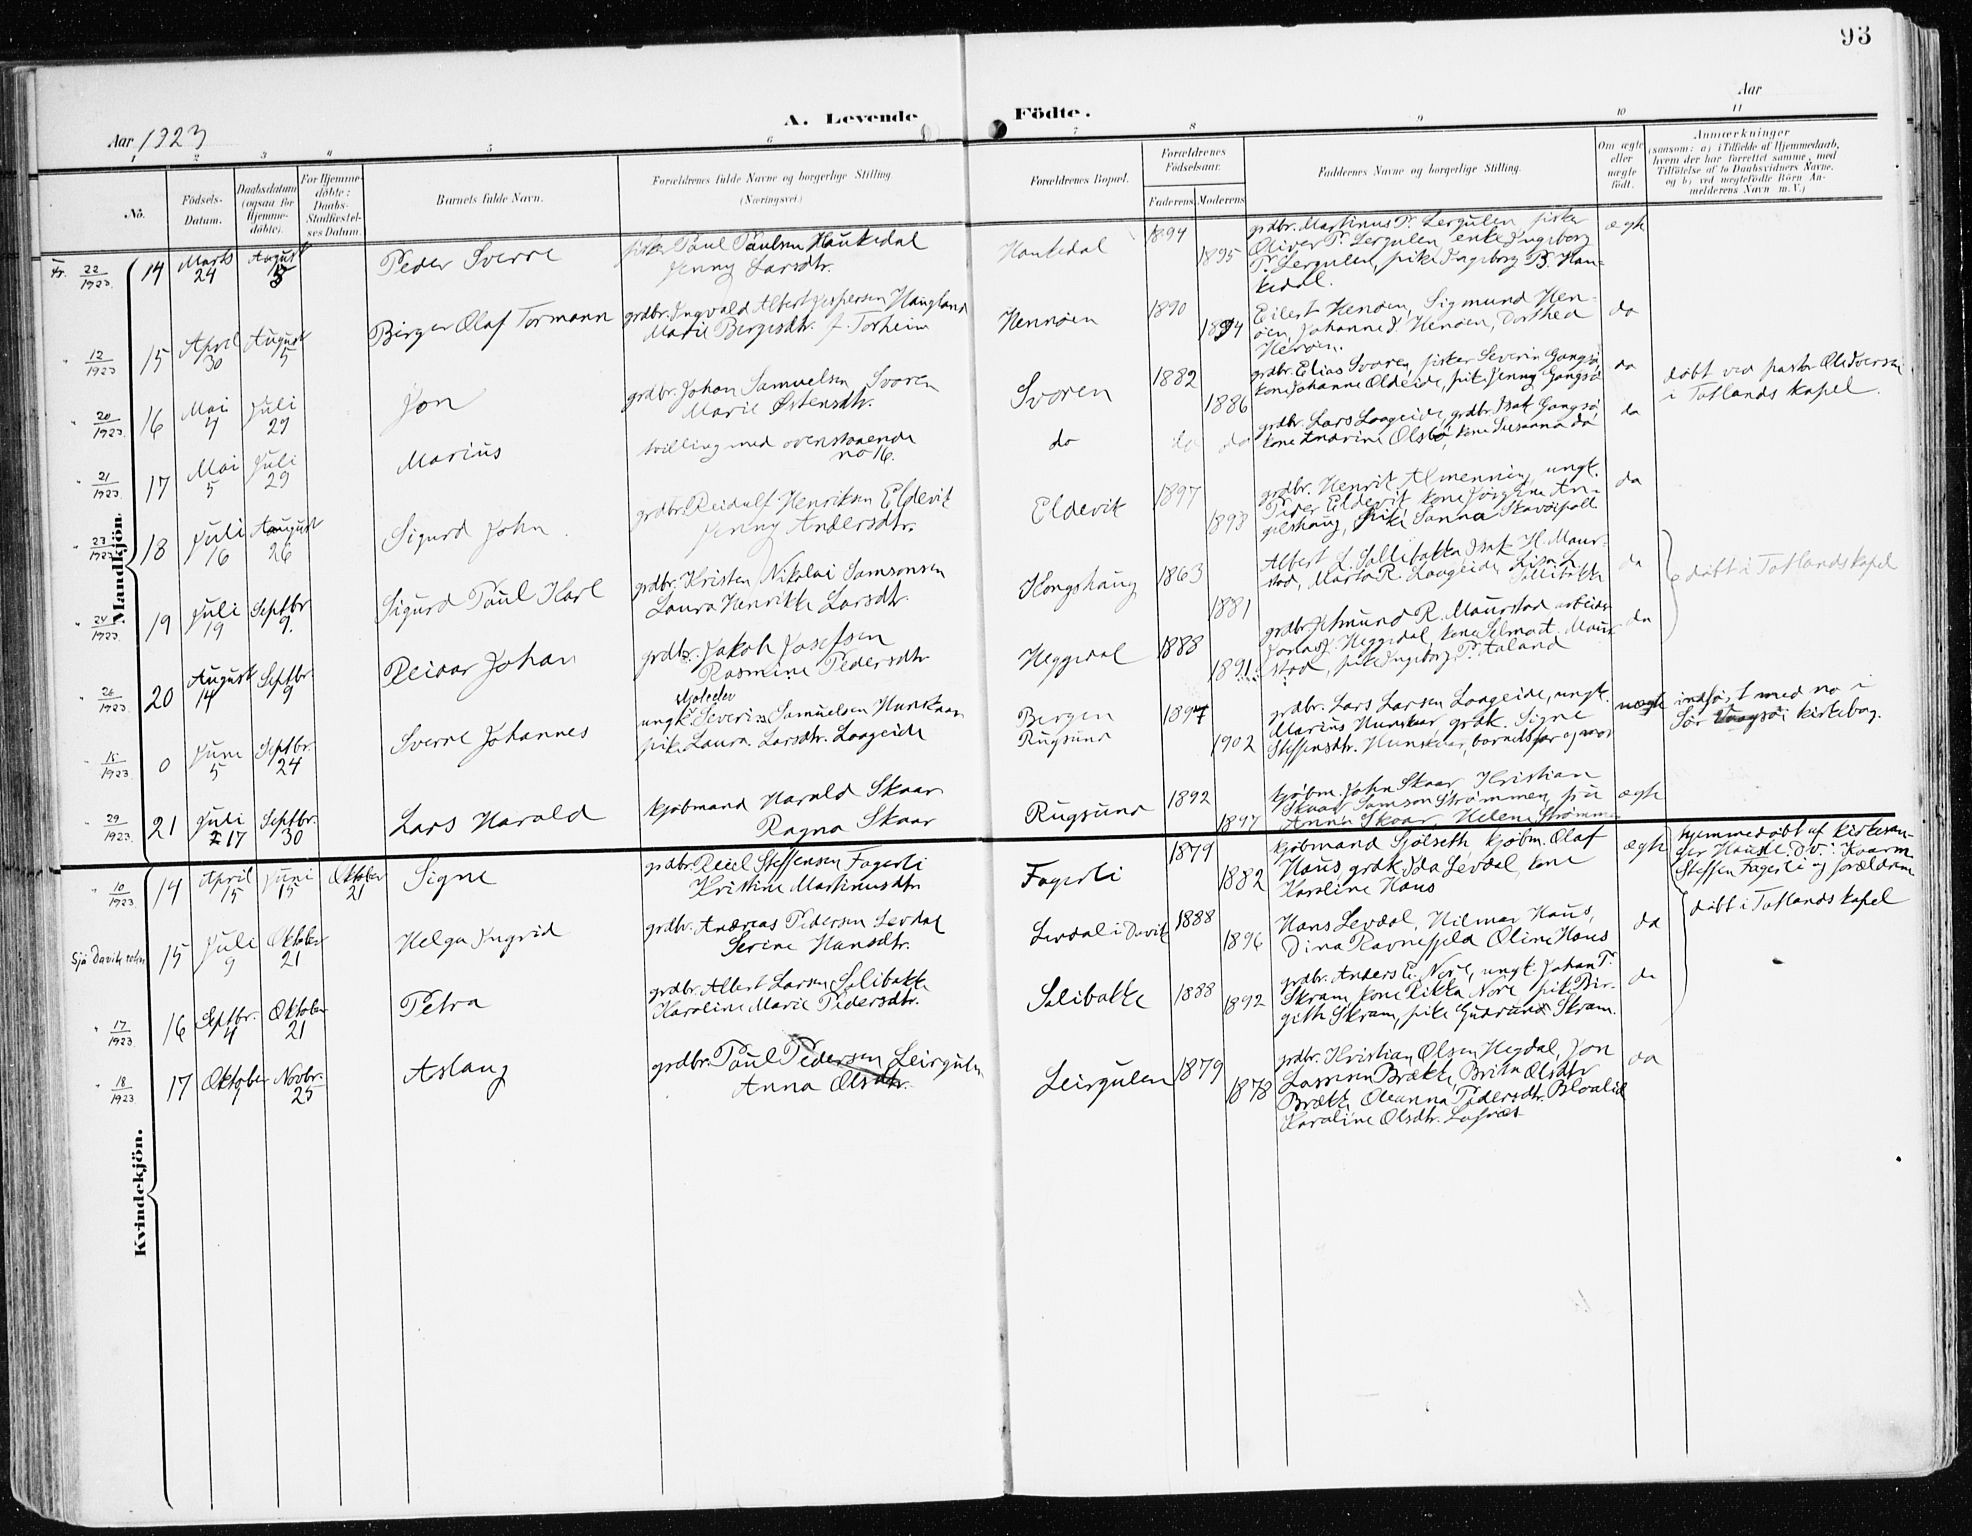 93
A. Levende Födte.
Aar 1923
Aar
1 2 3 4 5 6 7 8 9 10 11
No.
Födsels-Datum.
Daabsdatum (ogsaa for Hjemme-döbte).
For Hjemme-döbte: Daabs-Stadfæstel-ses Datum.
Barnets fulde Navn.
Forældrenes fulde Navne og borgerlige Stilling.
(Næringsvei.)
Forældrenes Bopæl.
Forældrenes Födselsaar.
Faderens Moderens
Faddernes Navne og borgerlige Stilling.
Om ægte eller uægte födt.
Anmærkninger
(saasom: a) i Tilfælde af Hjemmedaab, hvem der har forrettet samme, med Tilföielse af to Daabsvidners Navne, og b) ved uægtefödte Börn An-melderens Navn m. V.)
Mandkjön.
22/1923 14 Marts 24 August 5 Peder Sverre
fisker Paul Paulsen Haukedal
Jenny Larsdtr.
Haukedal 1894 1895
grdbr. Martinus P. Lergulen fisker
Oliver P. Lergulen, enke Ingeborg
P. Lergulen, pike Ingeborg B. Hau-
kedal.
ægte
12/1923 15 April 30 August 5 Birger Olaf Tormann
grdbr. Ingvald Albert Jespersen Haugland
Marie Bergesdtr. f. Torheim
Hennøen 1890 1894
Eilert Henøen, Sigmund Hen-
øen, Johanne J. Henøen, Dorthea
Henøen.
da
20/1923 16 Mai 4 Juli 29 Jon
grdbr. Johan Samuelsen Svoren
Marie Østensdtr.
Svoren 1882 1886
grdbr. Elias Svoren, fisker Severin Gangsø
kone Johanne Oldeide, pike Jenny Gangsø
da
døbt ved pastor
i Totlands kapel.
21/1923 17 Mai 5 Juli 29 Marius
tvilling med ovenstaaende
no 16.
do do do
grdbr. Lars Laageide, grdbr. Isak Gangsø,
kone Andrine Olsbø, kone Susanna do
da
23/1923 18 Juli 16 August 26 Sigurd John
grdbr. Reidulf Henriksen Eldevik
Jenny Andersdtr.
Eldevik 1897 1893
grdbr. Henrik Almenning, ungk.
Peder Eldevik, kone Jørgine An-
gelshaug, pike Sanna Skavøipoll
da
24/1923 19 Juli 19 Septbr. 9. Sigurd Paul Karl
grdbr. Kristen Nikolai Samsonsen
Laura Henrikke Larsdtr.
Kongshaug 1863 1881
Albert L. Sollibakke Isak H. Maur-
stad, Marta R. Laageide
Sollibakke
da
døbt i Totlandskapel
26/1923 20 August 14 Septbr. 9 Reidar Johan
grdbr. Jakob Josefsen
Rasmine Pedersdtr
Heggedal 1888 1891
grdbr. Asmund R. Maurstad arbeider
Jonas J. Heggedal, kone Selma Maur-
stad, pike Ingeborg P. Aaland
da
15/1923 0 Juni 5 Septbr. 24 Sverre Johannes
ungk. Severin Samuelsen Hunskaar
pike Laura Larsdtr. Laageide
Bergen
Rugsund
1897 1902
grdbr. Lars Larsen Laageide, ungk.
Marius Hunskaar, grdk. Signe
Steffensdtr. Hunskaar, barnets far og mor
uægte
indført med no i
Sør Vaagsøi kirkebog.
29/1923 21 Juli 17 Septbr. 30 Lars Harald
kjøbmand Harald Skaar
Ragna Skaar
Rugsund 1892 1897
kjøbm. John Skaar, Kristian
Skaar, Samson Strømmen, fru
Anna Skaar, Helene Strømmen
ægte
Kvindekjön.
10/1923 14 April 15 Juni 15 Oktober 21 Signe
grdbr. Steffensen Fagerli
Kristine Martinusdtr
Fagerli 1879 1882
kjøbmand Sjølseth kjøbm. Olaf
Haus, grdk. Ida Levdal, kone
Karoline Haus
ægte
hjemmedøbt af kirkesan-
ger Haus.
Steffen Fagerli og forældrene
Sjø Davik sokn 15 Juli 9 Oktober 21 Helga Ingrid
grdbr. Andreas Pedersen Levdal
Serine Hansdtr.
Levdal i Davik 1888 1896
Hans Levdal, Hilmar Haus,
Dina Ravnefjeld Oline Haus
da
døbt i Totlands kapel
17/1923 16 Septbr. 4 Oktober 21 Petra
grdbr. Albert Larsen Solibakke
Karoline Marie Pedersdtr.
Solibakke 1888 1892
grdbr. Anders E. Nore, ungk. Johan P.
Skram, kone Rikka Nore pike Bir-
gith Skram, pike Gudrun Skram.
da
18/1923 17 Oktober 1 Novbr. 25 Aslaug
grdbr. Paul Pedersen Leirgulen
Anna Olsdtr.
Leirgulen 1879 1878
grdbr. Kristian Olsen Hegdal, Jon
Lassesen Brække, Brita Olsdtr
Brække, Oleanna Pedersdtr. Blaalid
Karoline Olsdtr.
da